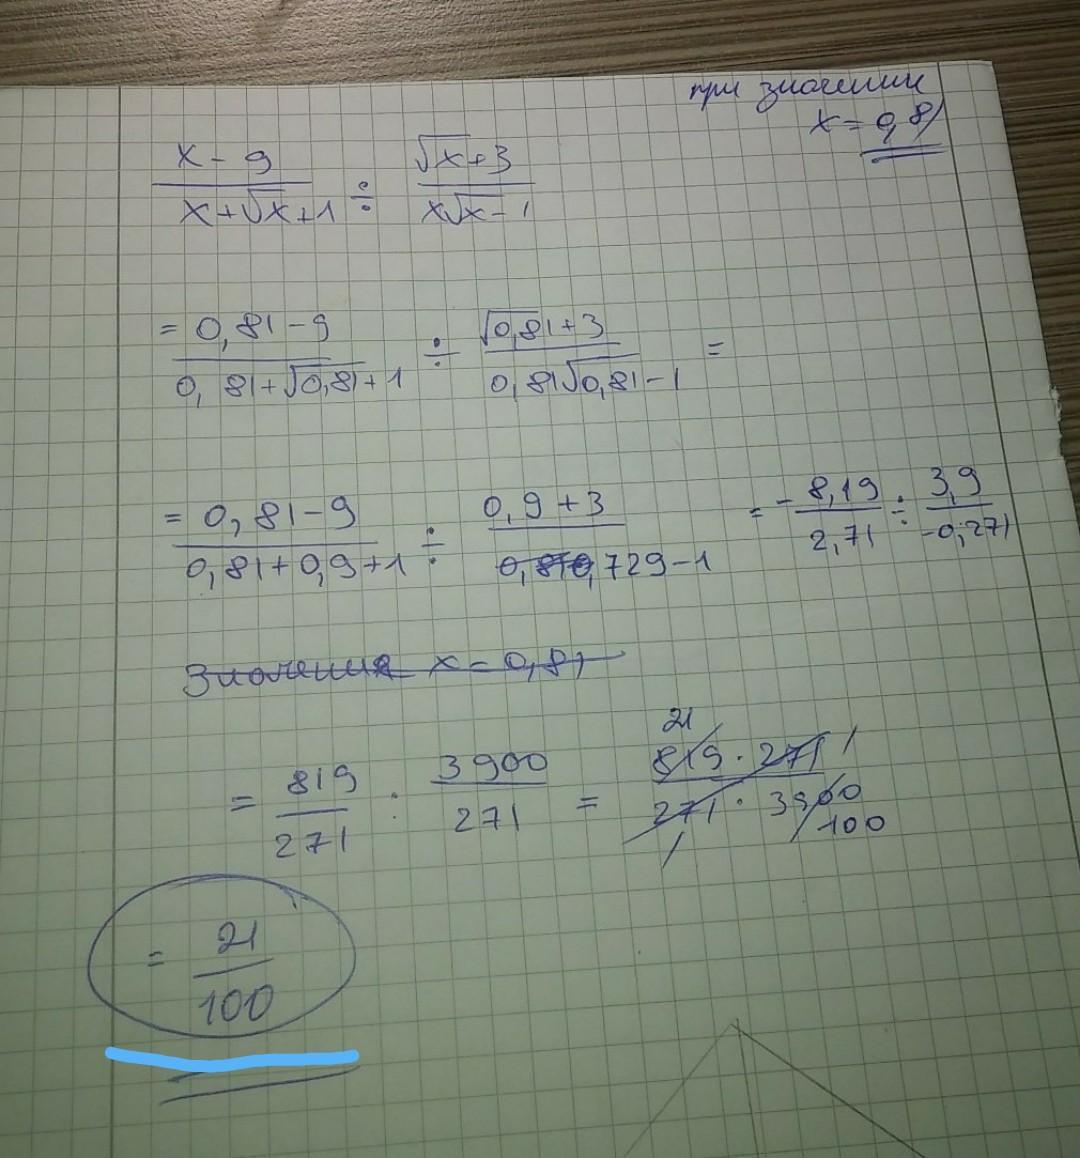 при значении
x = 0,81
x - 9 / x + √x + 1 ÷ √x + 3 / x√x - 1
= 0,81 - 9 / 0,81 + √0,81 + 1 ÷ √0,81 + 3 / 0,81√0,81 - 1 =
= 0,81 - 9 / 0,81 + 0,9 + 1 ÷ 0,9 + 3 / 0,729 - 1 = - 8,19 / 2,71 ÷ 3,9 / -0,271
Значения x = 0,81
= 819 / 271 · 3900 / 271 = 819 · 271 / 271 · 3900
21 1
1 100
= 21 / 100